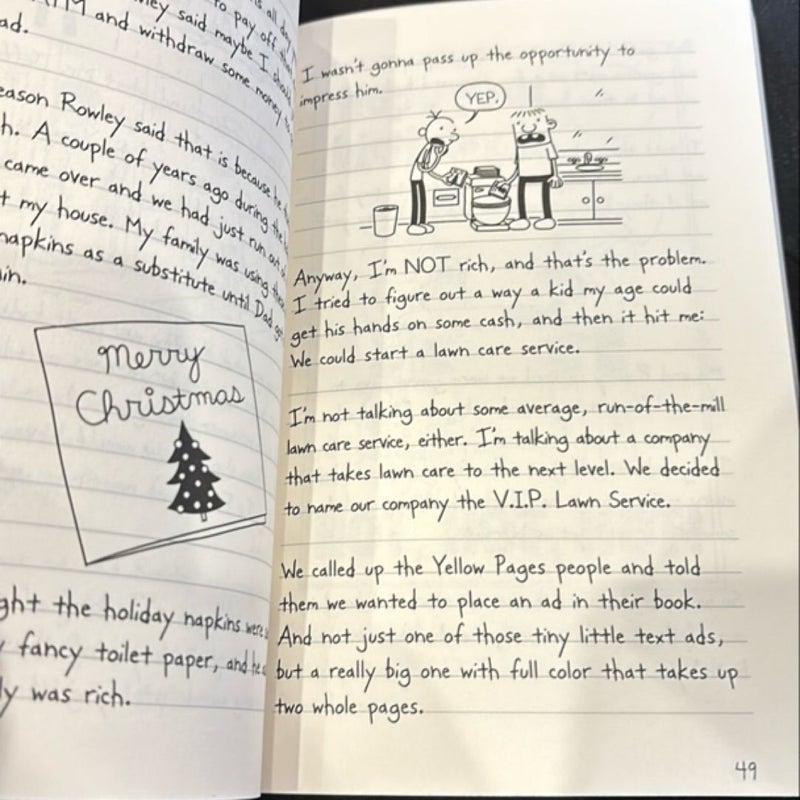 is all day
to pay off
said maybe I
and withdraw some money
ad.
eason Rowley said that is because he
h. A couple of years ago during the
came over and we had just run out
t my house. My family was using
napkins as a substitute until Dad
in.
Merry
Christmas
ght the holiday napkins were
fancy toilet paper, and he
ly was rich.
I wasn't gonna pass up the opportunity to
impress him.
YEP.
Anyway, I'm NOT rich, and that's the problem.
I tried to figure out a way a kid my age could
get his hands on some cash, and then it hit me:
We could start a lawn care service.
I'm not talking about some average, run-of-the-mill
lawn care service, either. I'm talking about a company
that takes lawn care to the next level. We decided
to name our company the V.I.P. Lawn Service.
We called up the Yellow Pages people and told
them we wanted to place an ad in their book.
And not just one of those tiny little text ads,
but a really big one with full color that takes up
two whole pages.
49